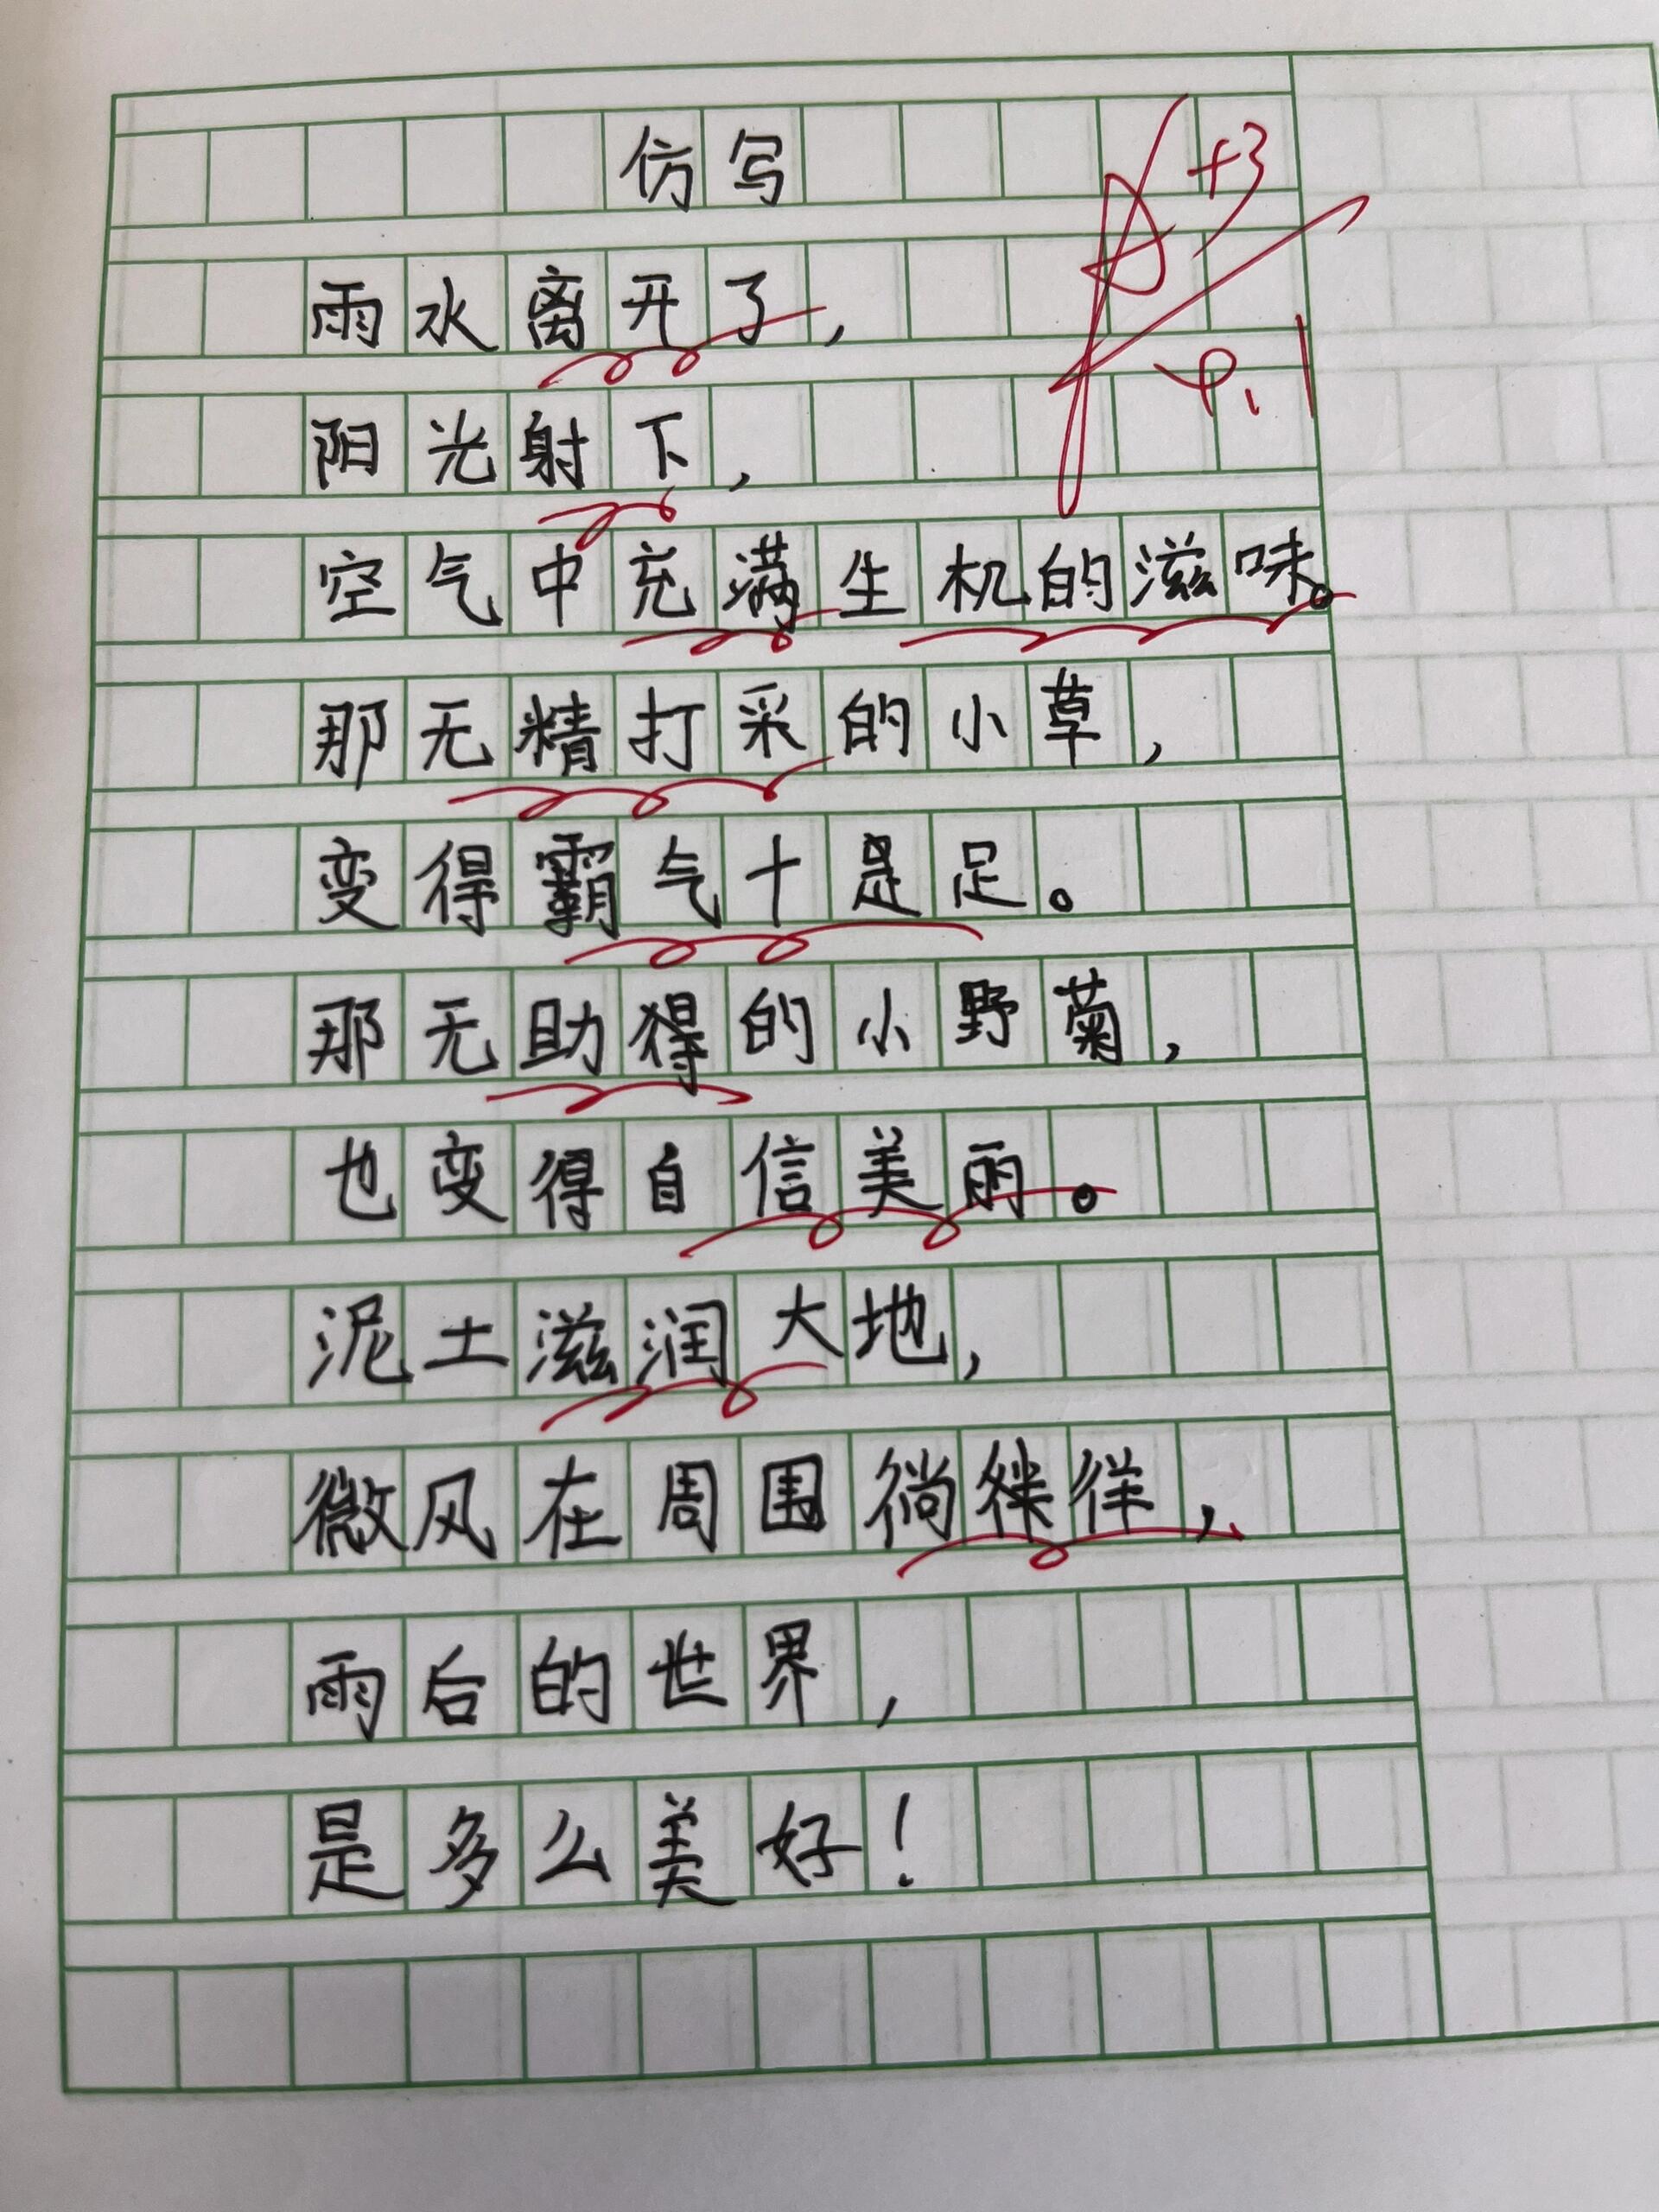 仿写
A+3
9.1
雨水离开了，
阳光射下，
空气中充满生机的滋味。
那无精打采的小草，
变得霸气十足。
那无助的小野菊，
也变得自信美丽。
泥土滋润大地，
微风在周围徜徉，
雨后的世界，
是多么美好！